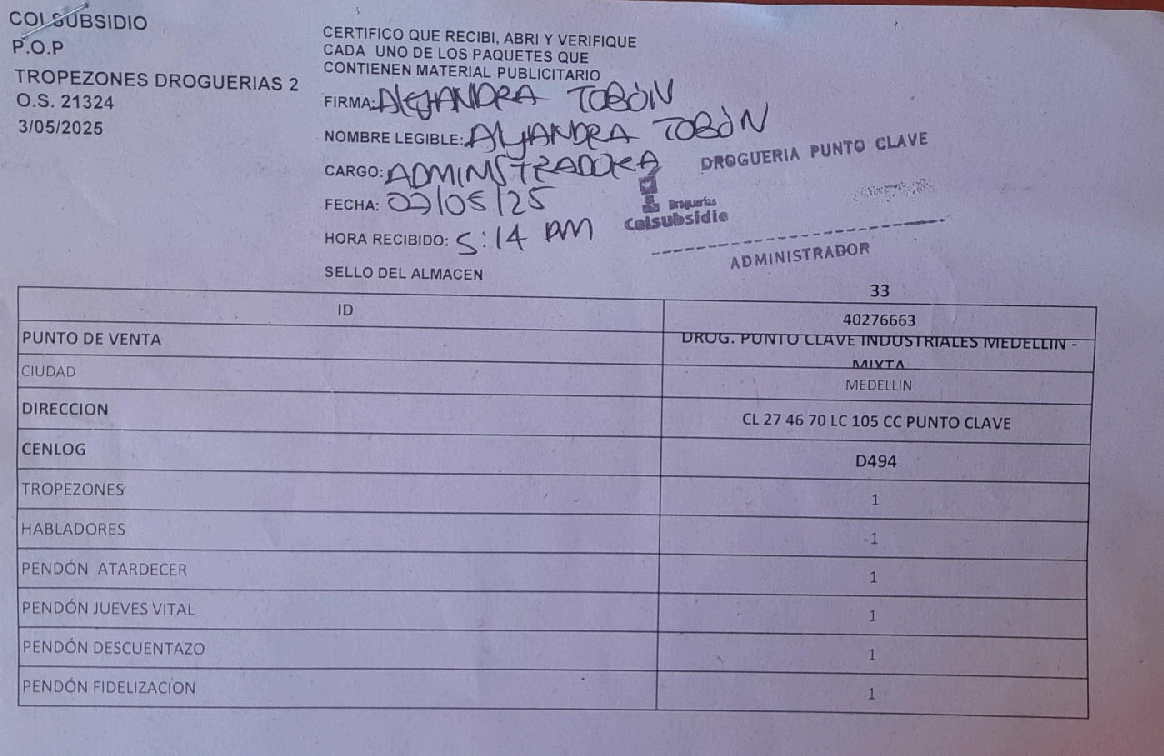 COLSUBSIDIO
P.O.P
TROPEZONES DROGUERIAS 2
O.S. 21324
3/05/2025
CERTIFICO QUE RECIBI, ABRI Y VERIFIQUE
CADA UNO DE LOS PAQUETES QUE
CONTIENEN MATERIAL PUBLICITARIO
FIRMA: ALEJANDRA TOBÓN
NOMBRE LEGIBLE: ALJANDRA TOBÓN
CARGO: ADMINISTRADORA
FECHA: /05/25
HORA RECIBIDO: 5:14 PM
SELLO DEL ALMACEN
DROGUERIA PUNTO CLAVE
Droguerías
Colsubsidio
ADMINISTRADOR
33
ID 40276663
PUNTO DE VENTA DROG. PUNTO CLAVE INDUSTRIALES MEDELLIN -
MIXTA
CIUDAD MEDELLIN
DIRECCION CL 27 46 70 LC 105 CC PUNTO CLAVE
CENLOG D494
TROPEZONES 1
HABLADORES 1
PENDÓN ATARDECER 1
PENDÓN JUEVES VITAL 1
PENDÓN DESCUENTAZO 1
PENDÓN FIDELIZACION 1